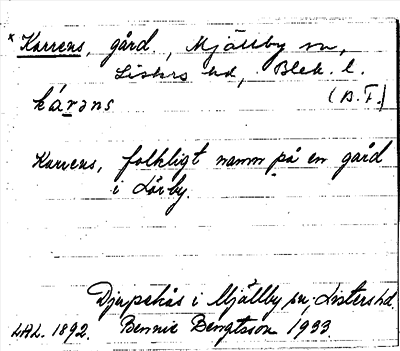 * Karrens, gård, Mjällby sn,
Listers hd, Blek. l.
kárəns (B.F.)
Karrens, folkligt namn på en gård
i Lörby.
Djupekås i Mjällby sn, Listers hd.
LAL. 1892. Bennie Bengtsson 1933.